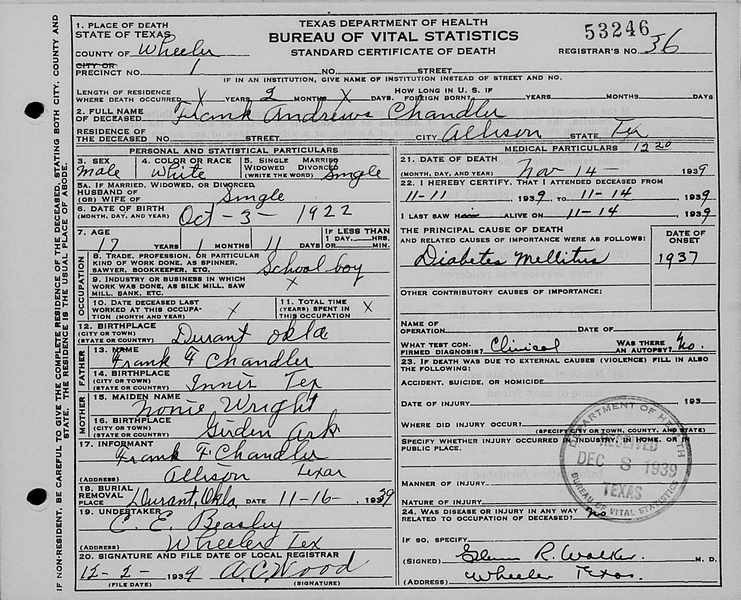 TEXAS DEPARTMENT OF HEALTH
BUREAU OF VITAL STATISTICS
STANDARD CERTIFICATE OF DEATH
53246
REGISTRAR'S NO. 36
1. PLACE OF DEATH
STATE OF TEXAS
COUNTY OF Wheeler
CITY OR
PRECINCT NO. 1 NO. STREET
IF IN AN INSTITUTION, GIVE NAME OF INSTITUTION INSTEAD OF STREET AND NO.
LENGTH OF RESIDENCE WHERE DEATH OCCURRED X YEARS 2 MONTHS X DAYS. HOW LONG IN U. S. IF FOREIGN BORN? YEARS MONTHS DAYS
2. FULL NAME OF DECEASED Frank Andrews Chandler
RESIDENCE OF THE DECEASED NO. STREET CITY Allison STATE Tex
PERSONAL AND STATISTICAL PARTICULARS
3. SEX Male
4. COLOR OR RACE White
5. SINGLE MARRIED WIDOWED DIVORCED (WRITE THE WORD) Single
5A. IF MARRIED, WIDOWED, OR DIVORCED
HUSBAND OF
(OR) WIFE OF Single
6. DATE OF BIRTH (MONTH, DAY, AND YEAR) Oct-3-1922
7. AGE 17 YEARS 1 MONTHS 11 DAYS IF LESS THAN 1 DAY HRS. OR MIN.
OCCUPATION
8. TRADE, PROFESSION, OR PARTICULAR
KIND OF WORK DONE, AS SPINNER,
SAWYER, BOOKKEEPER, ETC. School boy
9. INDUSTRY OR BUSINESS IN WHICH
WORK WAS DONE, AS SILK MILL, SAW
MILL, BANK, ETC. X
10. DATE DECEASED LAST WORKED AT THIS OCCUPATION (MONTH AND YEAR) X
11. TOTAL TIME (YEARS) SPENT IN THIS OCCUPATION X
12. BIRTHPLACE
(CITY OR TOWN)
(STATE OR COUNTRY) Durant Okla
FATHER
13. NAME Frank F Chandler
14. BIRTHPLACE
(CITY OR TOWN)
(STATE OR COUNTRY) Tex
MOTHER
15. MAIDEN NAME Nonie Wright
16. BIRTHPLACE
(CITY OR TOWN)
(STATE OR COUNTRY) Ark
17. INFORMANT Frank F. Chandler
(ADDRESS) Allison Texas
18. BURIAL REMOVAL PLACE Durant, Okla DATE 11-16- 1939
19. UNDERTAKER C. E. Beasley
(ADDRESS) Wheeler Tex
20. SIGNATURE AND FILE DATE OF LOCAL REGISTRAR
12-2- 1939 A. C. Wood
(FILE DATE) (SIGNATURE)
MEDICAL PARTICULARS 12 20
21. DATE OF DEATH
(MONTH, DAY, AND YEAR) Nov 14- 1939
22. I HEREBY CERTIFY, THAT I ATTENDED DECEASED FROM
11-11 1939 TO 11-14 1939
I LAST SAW Him ALIVE ON 11-14 1939
THE PRINCIPAL CAUSE OF DEATH
AND RELATED CAUSES OF IMPORTANCE WERE AS FOLLOWS:
DATE OF ONSET
Diabetes Mellitus 1937
OTHER CONTRIBUTORY CAUSES OF IMPORTANCE:
NAME OF OPERATION DATE OF
WHAT TEST CONFIRMED DIAGNOSIS? Clinical WAS THERE AN AUTOPSY? No.
23. IF DEATH WAS DUE TO EXTERNAL CAUSES (VIOLENCE) FILL IN ALSO
THE FOLLOWING:
ACCIDENT, SUICIDE, OR HOMICIDE
DATE OF INJURY 193
WHERE DID INJURY OCCUR?
(SPECIFY CITY OR TOWN, COUNTY, AND STATE)
SPECIFY WHETHER INJURY OCCURRED IN INDUSTRY, IN HOME, OR IN
PUBLIC PLACE.
MANNER OF INJURY
NATURE OF INJURY
24. WAS DISEASE OR INJURY IN ANY WAY
RELATED TO OCCUPATION OF DECEASED? No
IF SO, SPECIFY
(SIGNED) Glenn R. Walker M. D.
(ADDRESS) Wheeler Texas.
DEPARTMENT OF HEALTH
RECEIVED
DEC 8 1939
TEXAS
BUREAU OF VITAL STATISTICS
IF NON-RESIDENT, BE CAREFUL TO GIVE THE COMPLETE RESIDENCE OF THE DECEASED, STATING BOTH CITY, COUNTY AND
STATE. THE RESIDENCE IS THE USUAL PLACE OF ABODE.